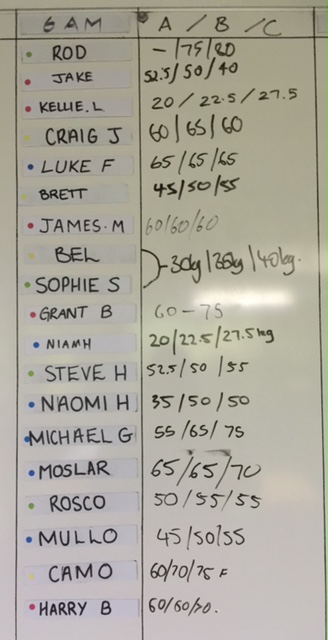 6 AM A / B / C
ROD - / 75 / 80
JAKE 52.5 / 50 / 40
KELLIE.L 20 / 22.5 / 27.5
CRAIG J 60 / 65 / 60
LUKE F 65 / 65 / 65
BRETT 45 / 50 / 55
JAMES.M 60/60/60
BEL
30kg / 35kg / 40kg.
SOPHIE S
GRANT B 60 - 75
NIAMH 20/22.5/27.5kg
STEVE H 52.5 / 50 / 55
NAOMI H 35 / 50 / 50
MICHAEL G 55 / 65 / 75
MOSLAR 65 / 65 / 70
ROSCO 50 / 55 / 55
MULLO 45 / 50 / 55
CAMO 60/70/75 F
HARRY B 60/60/70.